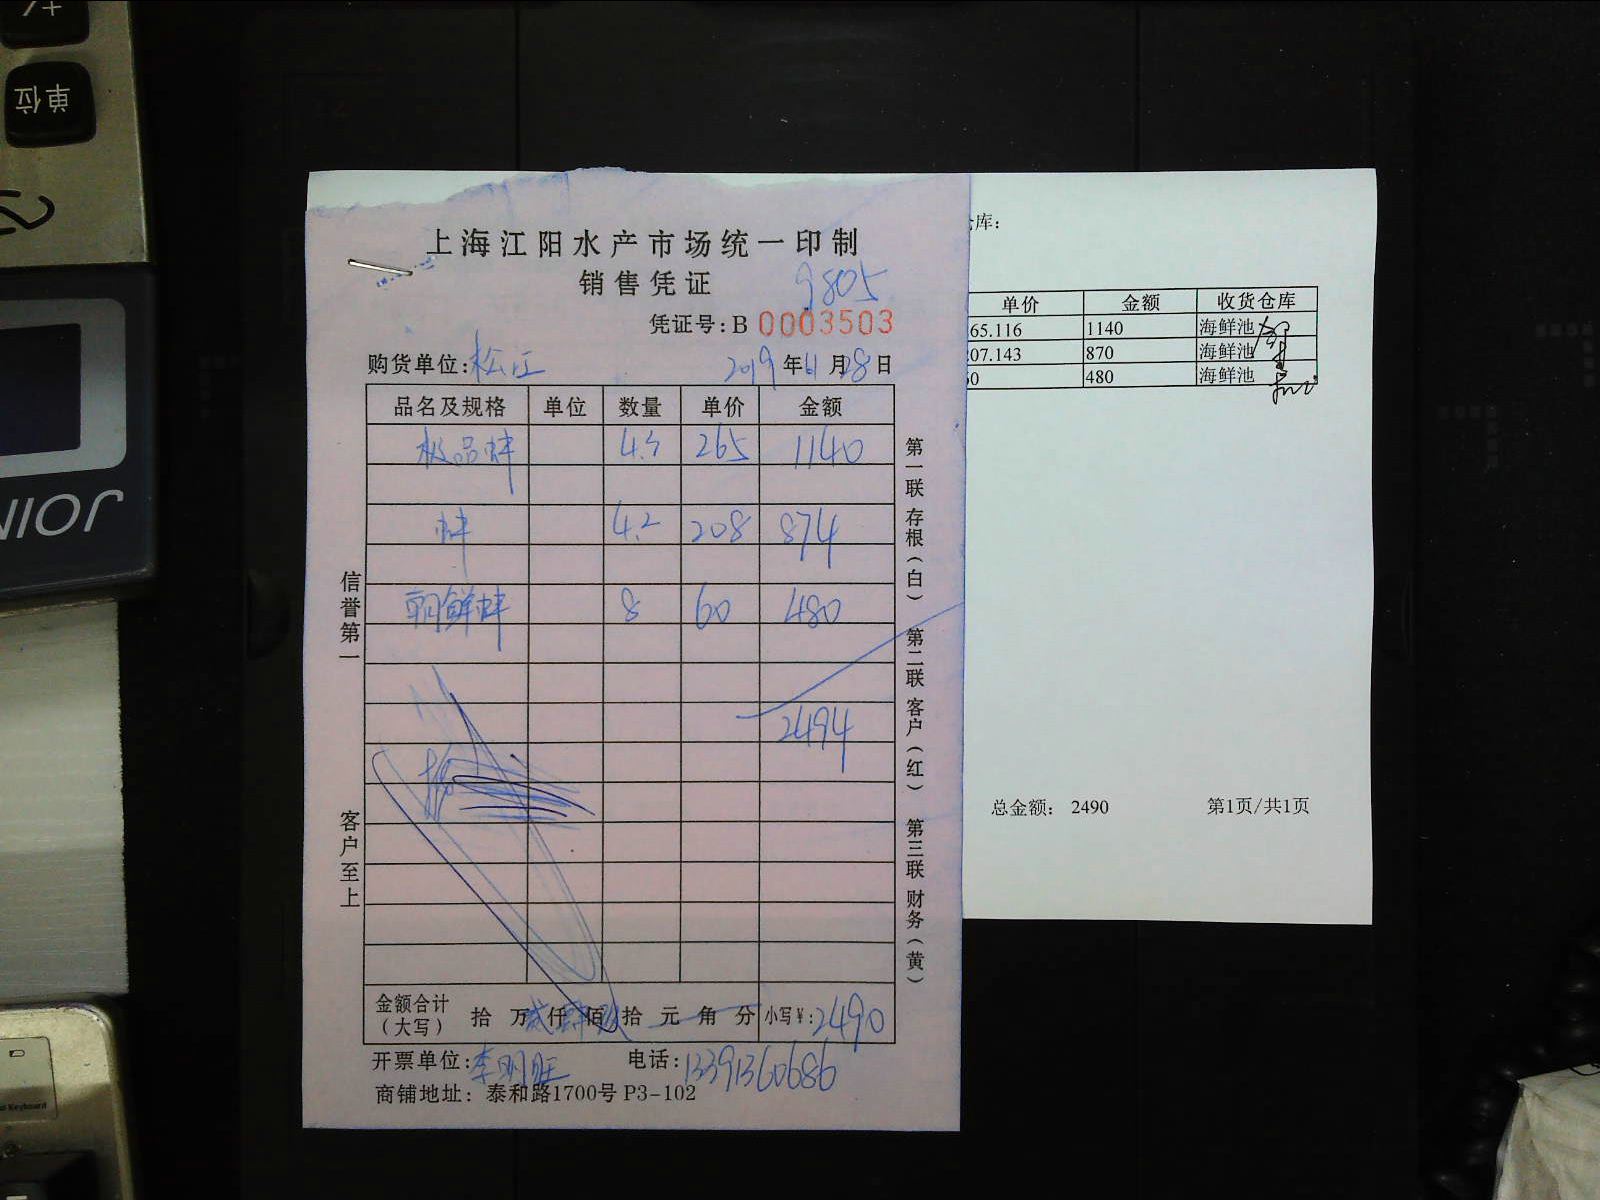 单位
JOIN
上海江阳水产市场统一印制
销售凭证
9805
凭证号:B 0003503
购货单位:松江 2019年11月28日
品名及规格 单位 数量 单价 金额
极品蚌 4.3 265 1140
蚌 4.2 208 874
朝鲜蚌 8 60 480
2494
金额合计(大写) 拾 万 贰 仟 肆 佰 玖 拾 元 角 分 小写¥:2490
开票单位:李明旺 电话:13391360686
商铺地址: 泰和路1700号 P3-102
信誉第一
客户至上
第一联 存根(白)
第二联 客户(红)
第三联 财务(黄)
库:
单价 金额 收货仓库
65.116 1140 海鲜池
07.143 870 海鲜池
0 480 海鲜池
总金额: 2490 第1页/共1页
Keyboard